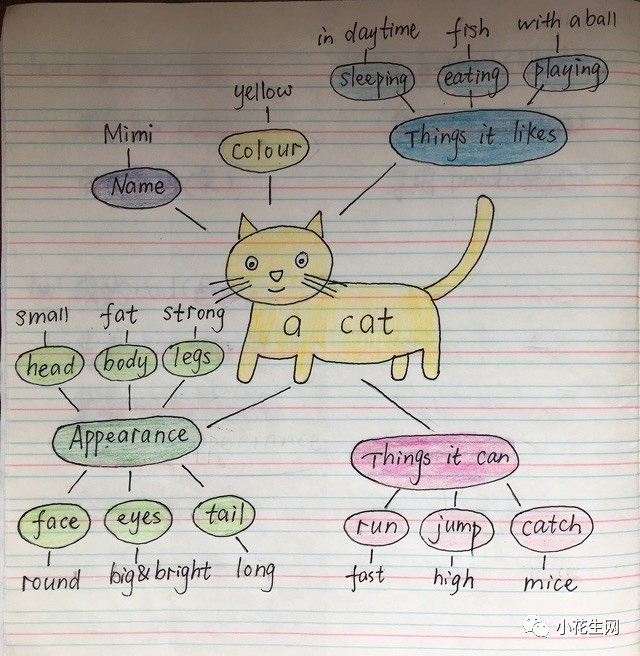 in daytime
fish
with a ball
sleeping
eating
playing
Things it likes
yellow
colour
Mimi
Name
a cat
small
fat
strong
head
body
legs
Appearance
face
eyes
tail
round
big&bright
long
Things it can
run
jump
catch
fast
high
mice
小花生网